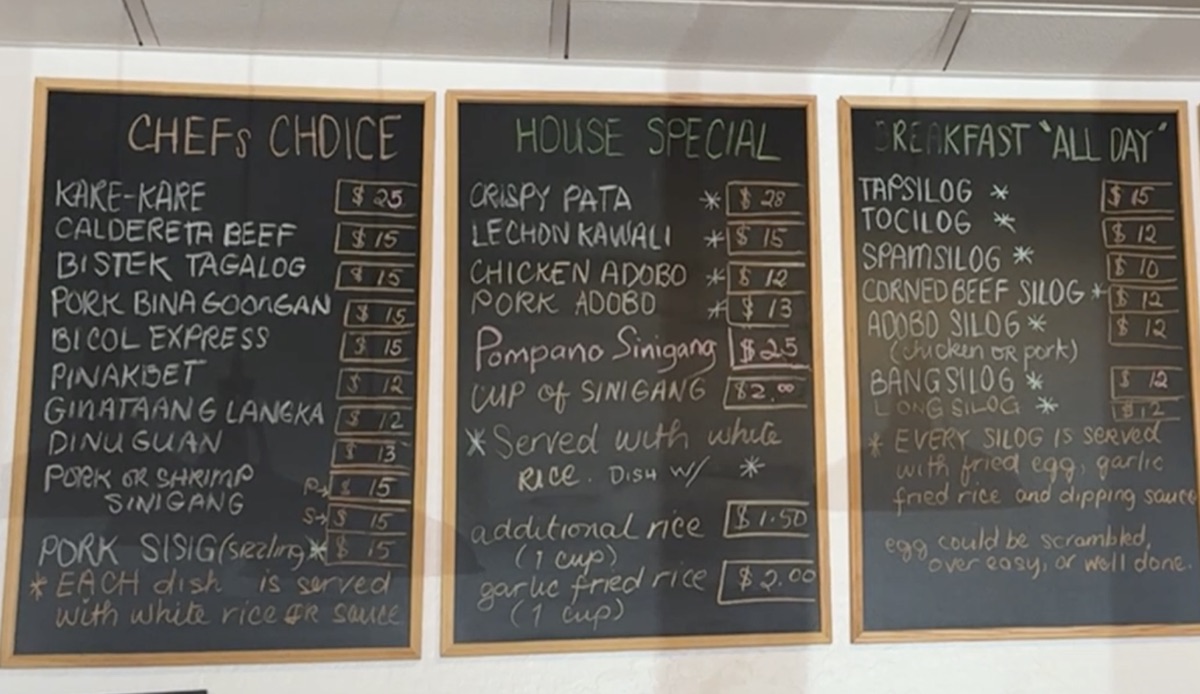 CHEFS CHOICE
KARE-KARE $25
CALDERETA BEEF $15
BISTEK TAGALOG $15
PORK BINAGOONGAN $15
BICOL EXPRESS $15
PINAKBET $12
GINATAANG LANGKA $12
DINUGUAN $13
PORK OR SHRIMP P→ $15
SINIGANG S→ $15
PORK SISIG (sizzling * $15
* EACH dish is served
with white rice OR sauce
HOUSE SPECIAL
CRISPY PATA * $28
LECHON KAWALI * $15
CHICKEN ADOBO * $12
PORK ADOBO * $13
Pompano Sinigang $25
CUP of SINIGANG $2.00
* Served with white
RICE. DISH W/ *
additional rice $1.50
(1 cup)
garlic fried rice $2.00
(1 cup)
BREAKFAST "ALL DAY"
TAPSILOG * $15
TOCILOG * $12
SPAMSILOG * $10
CORNED BEEF SILOG * $12
ADOBO SILOG * $12
(chicken OR pork)
BANGSILOG * $12
LONGSILOG * $12
* EVERY SILOG IS SERVED
with fried egg, garlic
fried rice and dipping sauce
egg could be scrambled,
over easy, or well done.